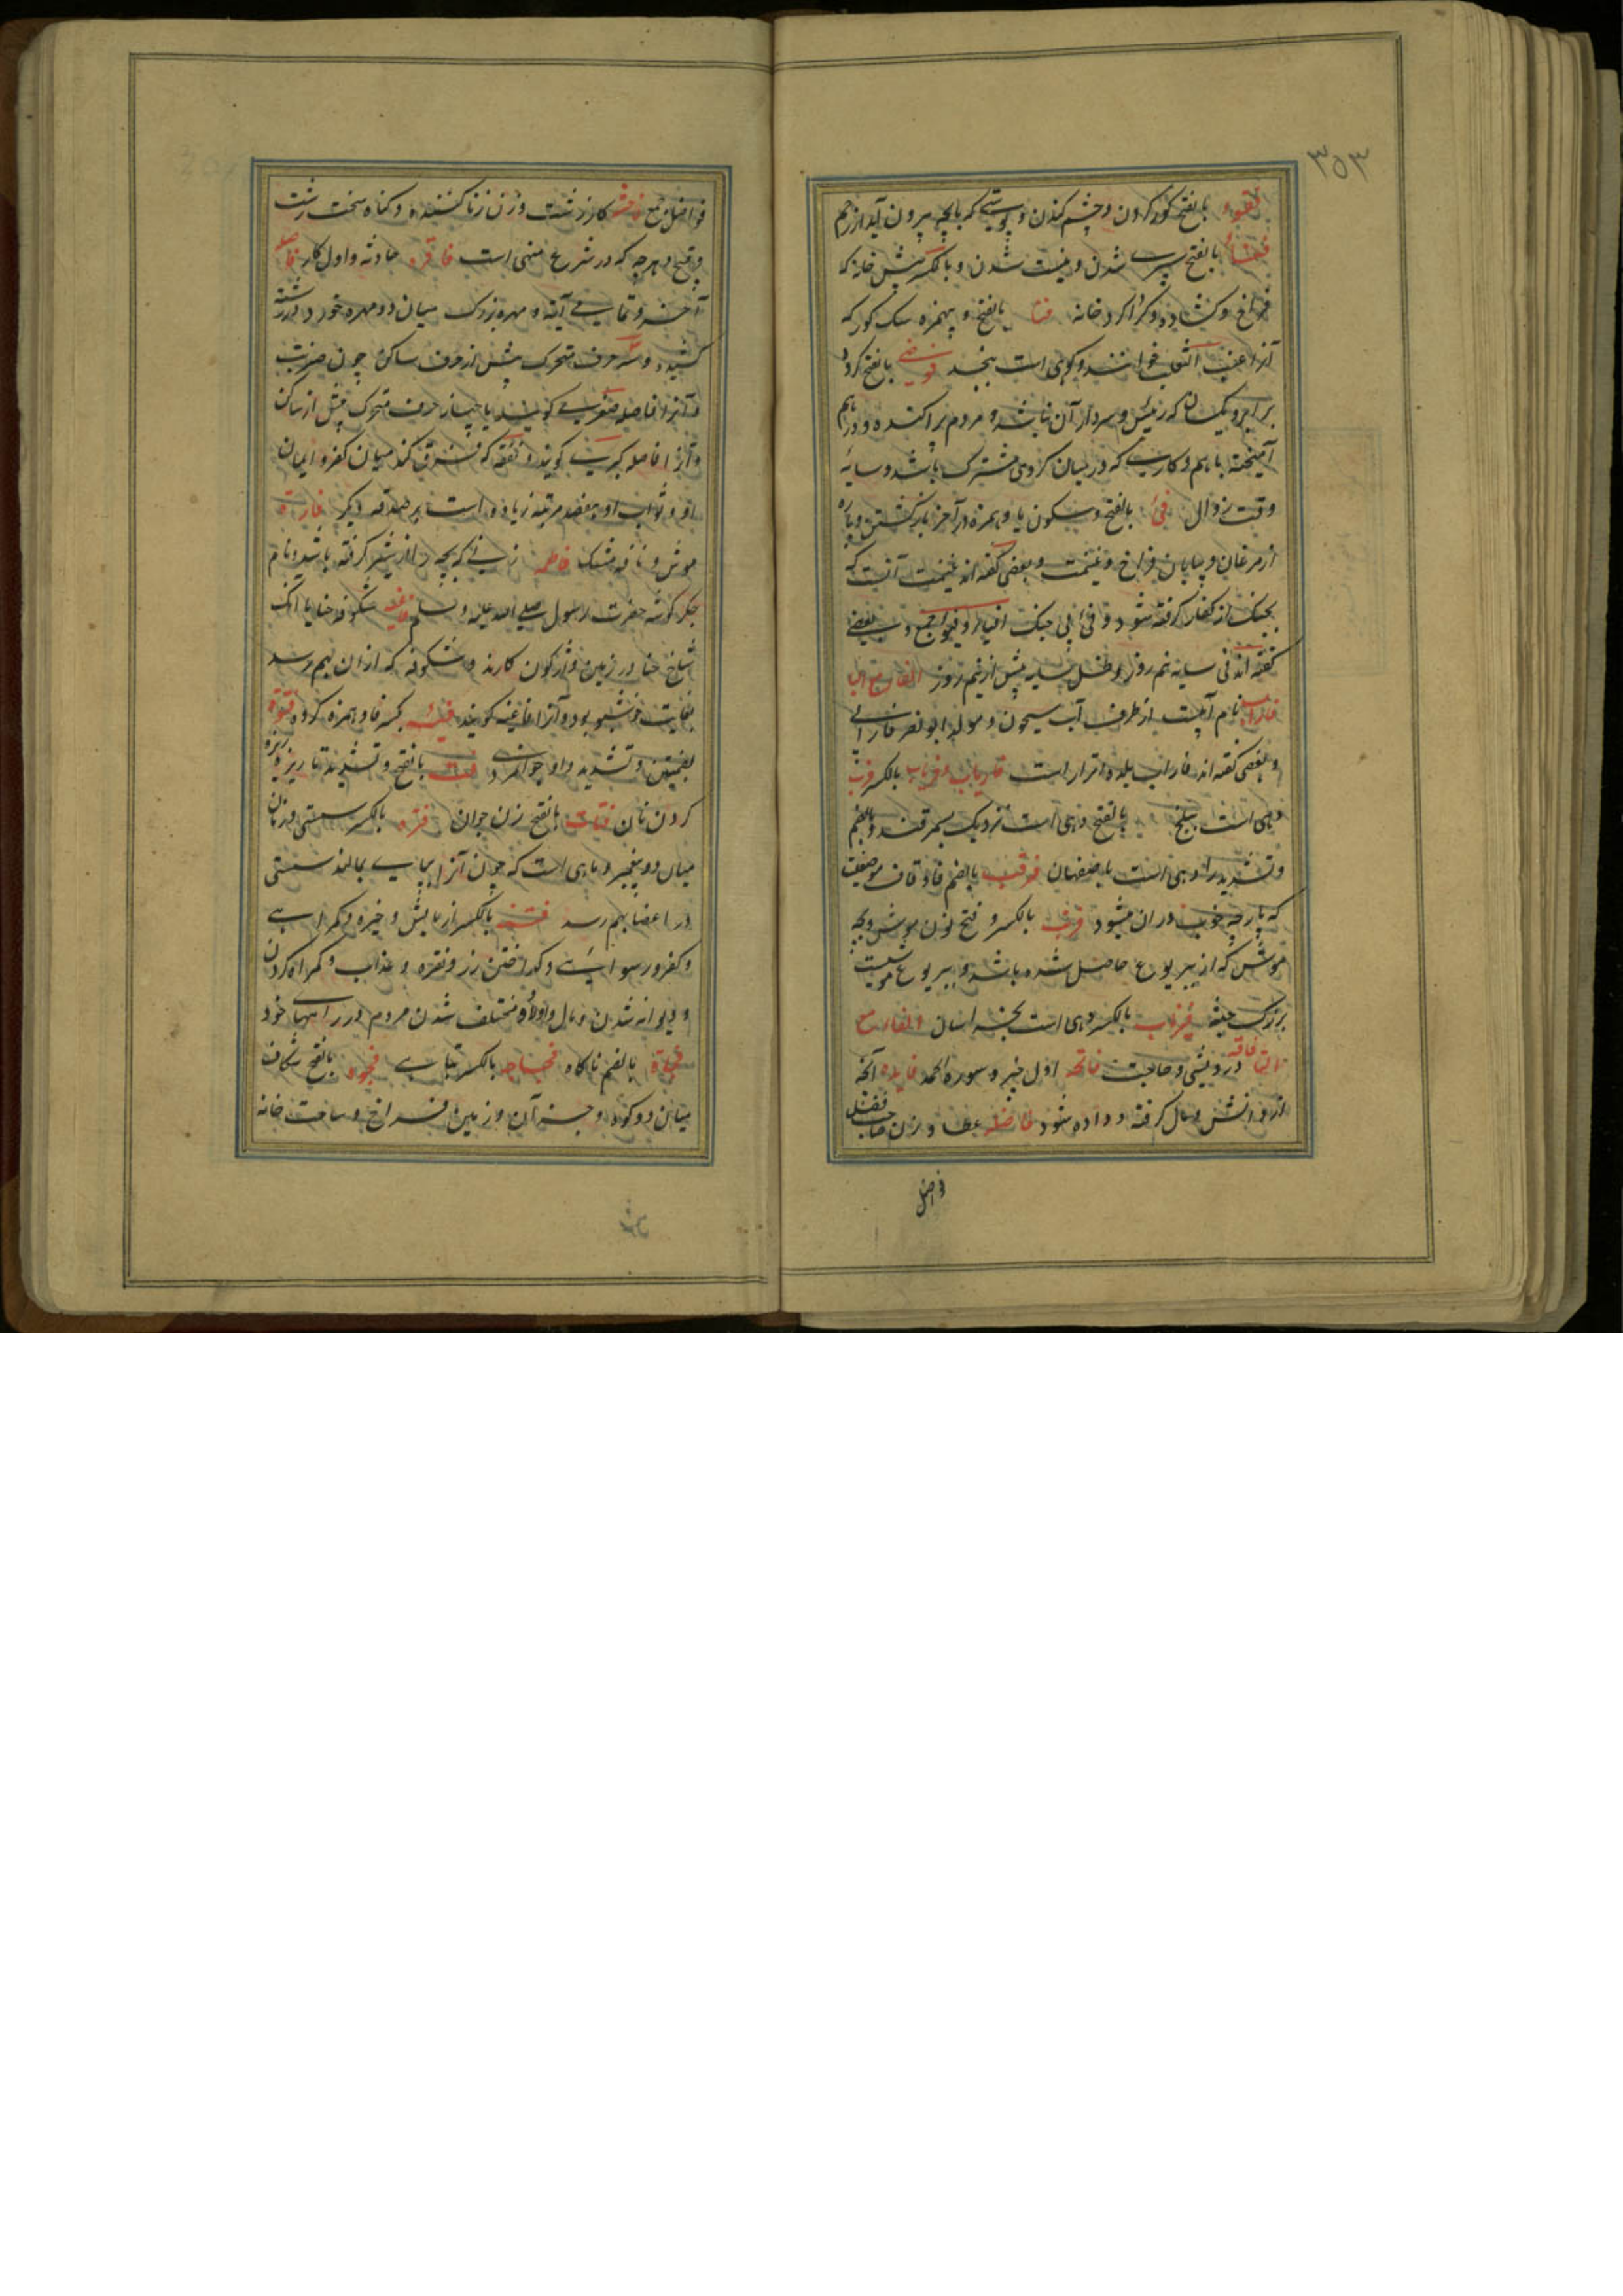 ۳۵۳
فقوء بالفتح کور کردن و چشم کندن و پوستی که با بچه بیرون آید از رحم
فناء بالفتح سپری شدن و نیست شدن و بالکسر پیش خانه که
فراخ و کشاده و کرداکرد خانه فنا بالفتح و بهمزه سک کور که
آنرا عنب الثعلب خوانند و کوهی است بنجد فوضی بالفتح کروه
برابر و یکسان که رئیس و سردار آن نباشد و مردم پراکنده و درهم
آمیخته باهم و کاریست که در میان کروهی مشترک باشد و سایه
وقت زوال فیء بالفتح و سکون یا و همزه در آخر بازکشتن و پاره
از مرغان و بیابان فراخ و غنیمت و بعضی کفته اند غنیمت آنست که
بجنک از کفار کرفته شود و فیء بی جنک افیاء و فیوء جمع و بعضی
کفته اند فیء سایه نیم روز و ظل سایه پیش از نیم روز الفاء مع البا
فاراب نام آبیست از طرف آب سیحون و مولد ابو نصر فارابی
و بعضی کفته اند فاراب بلده اترار است فاریاب و فریاب بالکسر
دهی است ببلخ بالفتح دهی است نزدیک سمرقند و بالضم
و تشدید را دهی است باصفهان فرقب بالضم فا و قاف موضعیست
که پارچه خوب دران میشود فرنب بالکسر و فتح نون موش و بچه
موش که از یربوع حاصل شده باشد و یربوع موشیست
بزرک جثه بالکسر دهی است بخراسان الفاء مع
التا فاقه درویشی و حاجت فاتحه اول خبر و سوره الحمد فایده آنچه
از دانش و مال کرفته و داده شود فاضله عطا و زن صاحب فضل
فواضل
فواضل جمع فاحشه کار زشت و زن زنا کننده و کناه سخت زشت
و قبیح و هرچه که در شرع منهی است فاقره حادثه و اول کار فاصله
آخر و تمامی آیة و مهره بزرک میان دو مهره خورد در رشته
کشیده و سه حرف متحرک پیش از حرف ساکن چون ضربت
و آنرا فاصله صغری کویند یا چهار حرف متحرک پیش از ساکن
و آنرا فاصله کبری کویند و نفقه که فرق کند میان کفر و ایمان
و ثواب او بهفصد مرتبه زیاده است بر صدقه دیکر فارة
موش و نافه مشک فاطمه زنی که بچه را از شیر کرفته باشد و نام
جکرکوشه حضرت رسول صلی الله علیه و سلم فاغیه شکوفه حنا یا آنک
شاخ حنا در زمین واژکون کارند و شکوفه که ازان بهم رسد
بغایت خوشبو بود و آنرا فاغیه کویند فئه بکسر فا و همزه کروه فتوة
بضمتین و تشدید واو جوانمردی فت بالفتح و تشدید تا ریزه ریزه
کردن نان فتات بالفتح زن جوان فترة بالکسر سستی و زمان
میان دو پیغمبر و ماهی است که چون آنرا بپای بمالند سستی
در اعضا بهم رسد فتنه بالکسر آزمایش و خیره و کمراهی
و کفر و رسوایی و کداختن زر و نقره و عذاب و کمراه کردن
و دیوانه شدن و مال و اولاد و مختلف شدن مردم در راههای خود
فجاءة بالضم ناکاه بالکسر فجوة بالفتح شکاف
میان دو کوه و جز آن و زمین فراخ و ساحت خانه